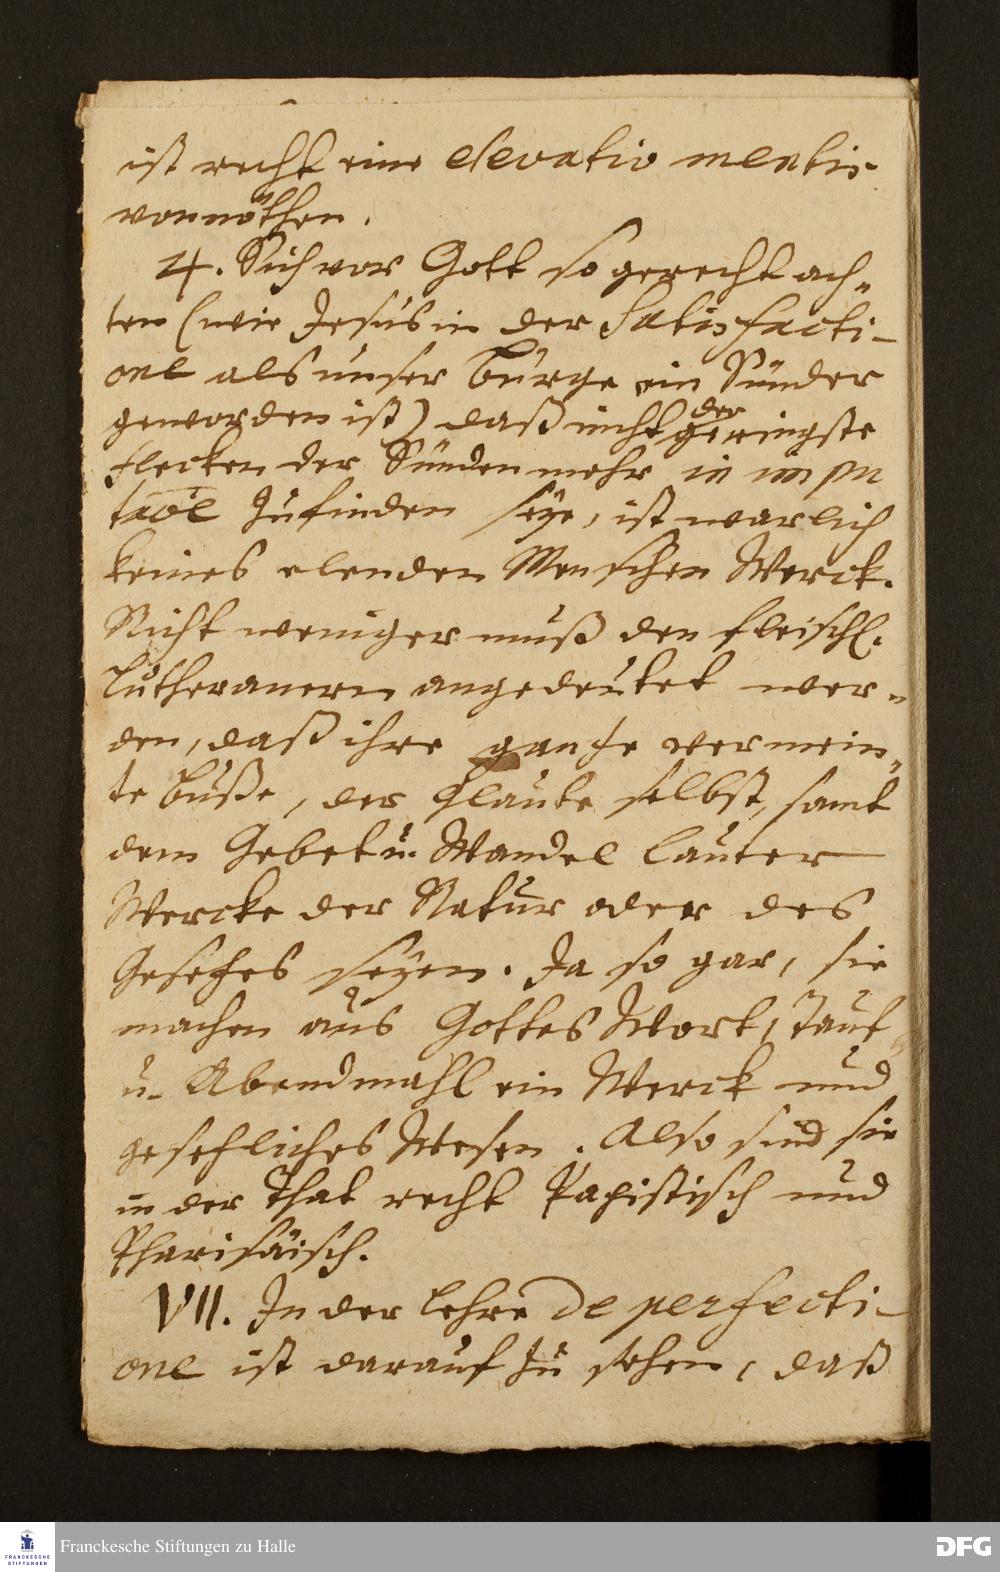 ist recht eine elevatio mentis
vonnöthen.
4. Sich vor Gott so gerecht ach„
ten (wie Jesus in der Satisfacti-
one als unser Bürge ein Sünder
geworden ist) daß nicht der geringste
Flecken der Sünden mehr in impu
taōe zufinden seye, ist warlich
keines elenden Menschen Werck.
Nicht weniger muß den fleischl.
Lutheranern angedeutet wer„
den, daß ihre gantze vermein„
te Buße, der Glaube selbst, samt
dem Gebet u. Wandel lauter
Wercke der Natur oder des
Gesetzes seyen. Ja so gar, sie
machen aus Gottes Wort, Tauf
u. Abendmahl ein Werck und
gesetzliches Wesen. Also sind sie
in der That recht Papistisch und
Pharisäisch.
VII. In der Lehre de perfecti-
one ist darauf zu sehen, daß
FRANCKESCHE
STIFTUNGEN
Franckesche Stiftungen zu Halle
DFG